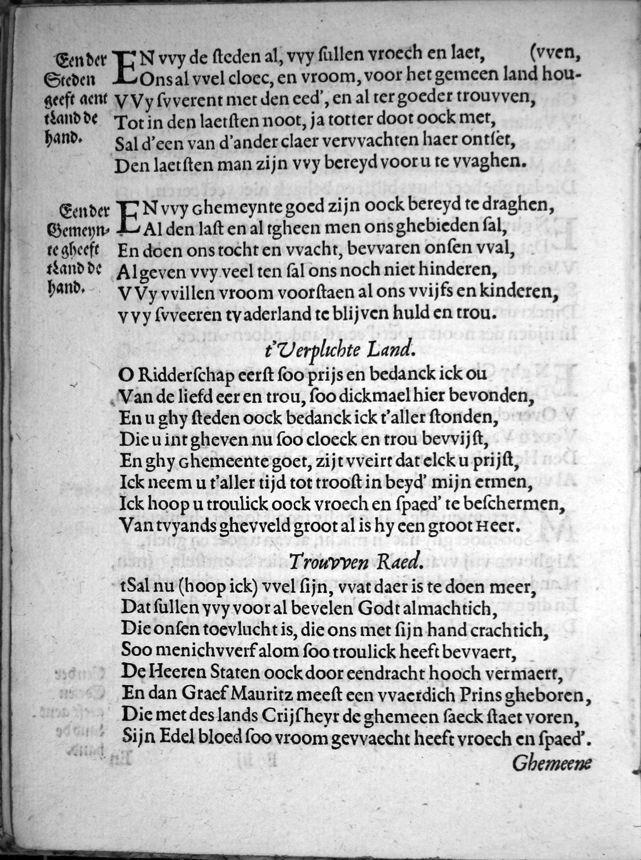 Een der
Steden
geeft aent
tLand de
hand.
EN vvy de steden al, vvy sullen vroech en laet, (vven,
Ons al vvel cloec, en vroom, voor het gemeen land hou-
VVy svverent met den eed', en al ter goeder trouvven,
Tot in den laetsten noot, ja totter doot oock met,
Sal d'een van d'ander claer vervvachten haer ontset,
Den laetsten man zijn vvy bereyd voor u te vvaghen.
Een der
Gemeyn-
te gheeft
tLand de
hand.
EN vvy Ghemeynte goed zijn oock bereyd te draghen,
Al den last en al tgheen men ons ghebieden sal,
En doen ons tocht en vvacht, bevvaren onsen vval,
Al geven vvy veel ten sal ons noch niet hinderen,
VVy vvillen vroom voorstaen al ons vvijfs en kinderen,
vvy svveeren tvaderland te blijven huld en trou.
t'Verplichte Land.
O Ridderschap eerst soo prijs en bedanck ick ou
Van de liefd eer en trou, soo dickmael hier bevonden,
En u ghy steden oock bedanck ick t'aller stonden,
Die u int gheven nu soo cloeck en trou bevvijst,
En ghy Ghemeente goet, zijt vveirt dat elck u prijst,
Ick neem u t'aller tijd tot troost in beyd' mijn ermen,
Ick hoop u troulick oock vroech en spaed' te beschermen,
Van tvyands ghevveld groot al is hy een groot Heer.
Trouvven Raed.
tSal nu (hoop ick) vvel sijn, vvat daer is te doen meer,
Dat sullen vvy voor al bevelen Godt almachtich,
Die onsen toevlucht is, die ons met sijn hand crachtich,
Soo menichvverf alom soo troulick heeft bevvaert,
De Heeren Staten oock door eendracht hooch vermaert,
En dan Graef Mauritz meest een vvaerdich Prins gheboren,
Die met des lands Crijsheyr de ghemeen saeck staet voren,
Sijn Edel bloed soo vroom gevvaecht heeft vroech en spaed'.
Ghemeene